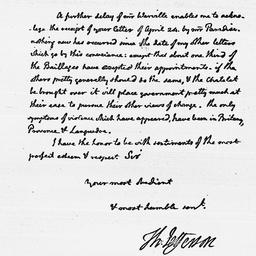 A further delay of mr Merville enables me to acknow-
lege the receipt of your letter of April 24. by mr Paradise.
nothing new has occurred since the date of my other letters
which go by this conveiance: except that about one third of
the Bailliages have accepted their appointments. if the
others pretty generally should do the same, & the Chatelet
be brought over it will place government pretty much at
their ease to pursue their other views of change. the only
symptoms of violence which have appeared, have been in Britany,
Provence & Languedoc.
I have the honor to be with sentiments of the most
perfect esteem & respect Sir
Your most obedient
& most humble servt.
Th: Jefferson